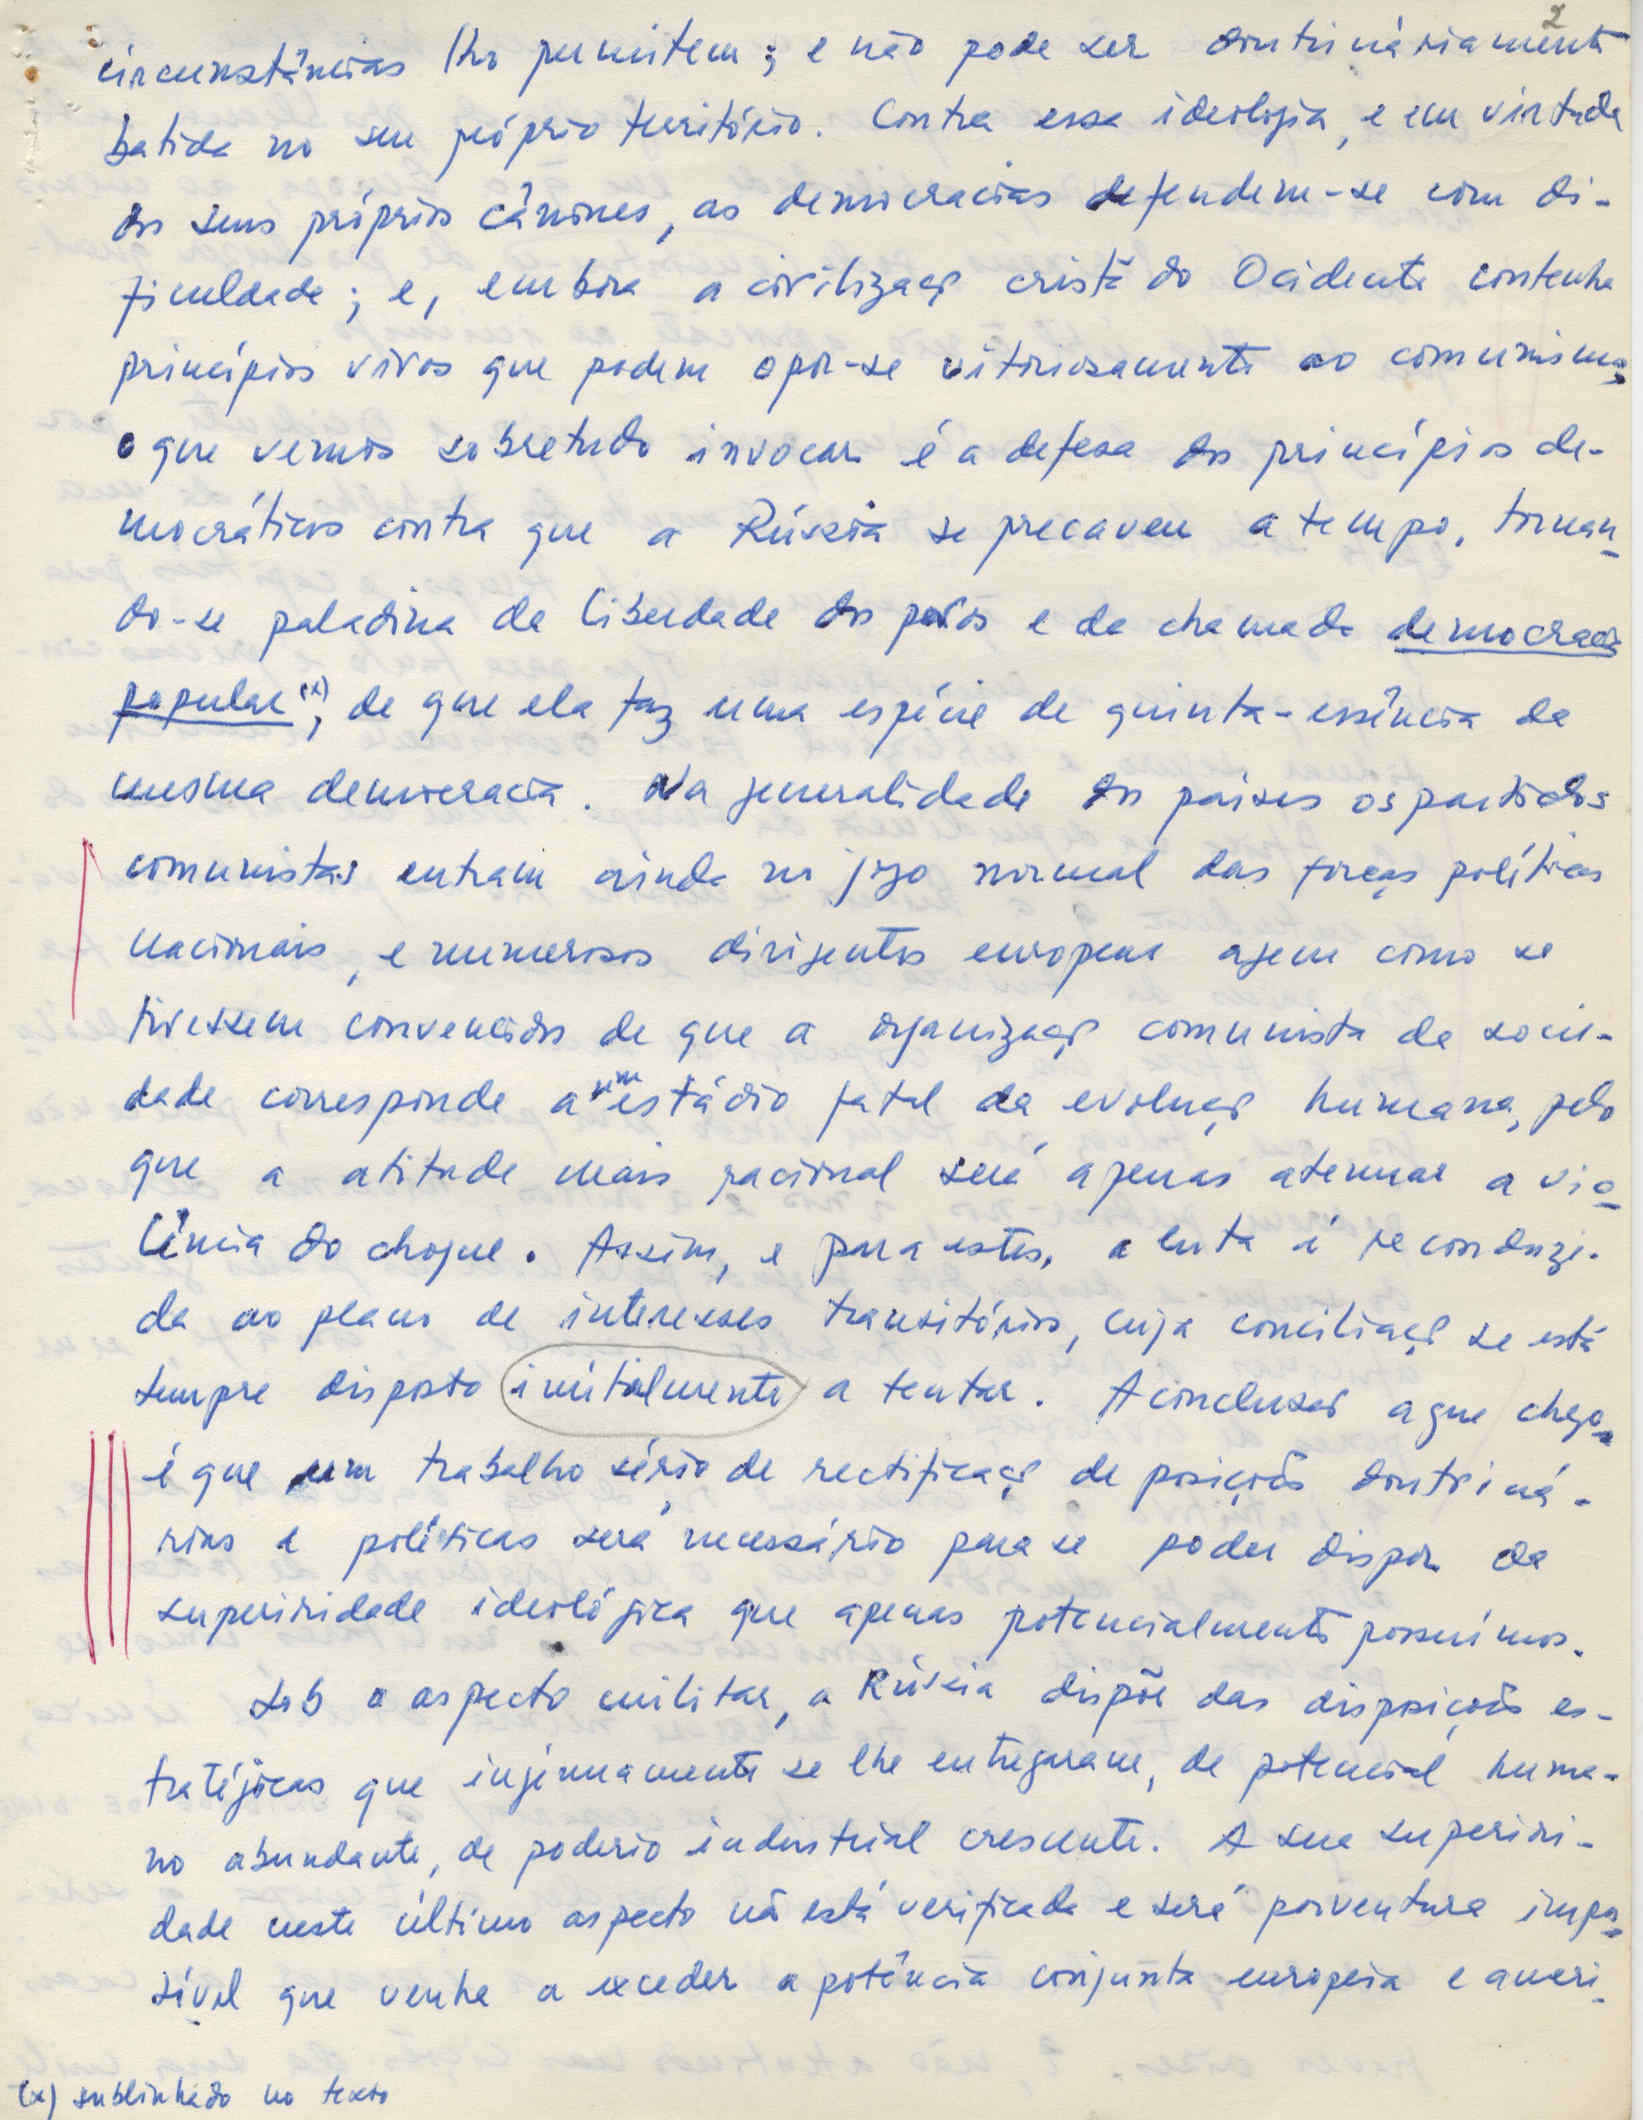 2
circunstâncias lho permitem; e não pode ser doutrináriamente
batida no seu próprio território. Contra essa ideologia, e em virtude
dos seus próprios cânones, as democracias defendem-se com di-
ficuldade; e, embora a civilizaçã cristã do Ocidente contenha
princípios vivos que podem opor-se vitoriosamente ao comunismo,
o que vemos sobretudo invocar é a defesa dos princípios de-
mocráticos contra que a Rússia se precaveu a tempo, tornan-
do-se paladina da liberdade dos povos e da chamada democracia
popular (x), de que ela faz uma espécie de quinta-essência da
mesma democracia. Na generalidade dos países os partidos
comunistas entram ainda no jogo normal das forças políticas
nacionais, e numerosos dirigentes europeus agem como se
tivessem convencidos de que a organizaçã comunista da socie-
dade corresponde a um estádio fatal da evoluçã humana, pelo
que a atitude mais racional será apenas atenuar a vio-
lência do choque. Assim, e para estes, a luta é reconduzi-
da ao plano de interesses transitórios, cuja conciliaçã se está
sempre disposto inùtilmente a tentar. A conclusã a que chego
é que um trabalho sério de rectificaçã de posições doutriná-
rias e políticas será necessário para se poder dispor da
superioridade ideológica que apenas potencialmente possuímos.
Sob o aspecto militar, a Rússia dispõe das disposições es-
tratégicas que ingénuamente se lhe entregaram, de potencial huma-
no abundante, de poderio industrial crescente. A sua superiori-
dade neste último aspecto nã está verificada e será porventura impos-
sível que venha a exceder a potência conjunta europeia e ameri-
(x) sublinhado no texto